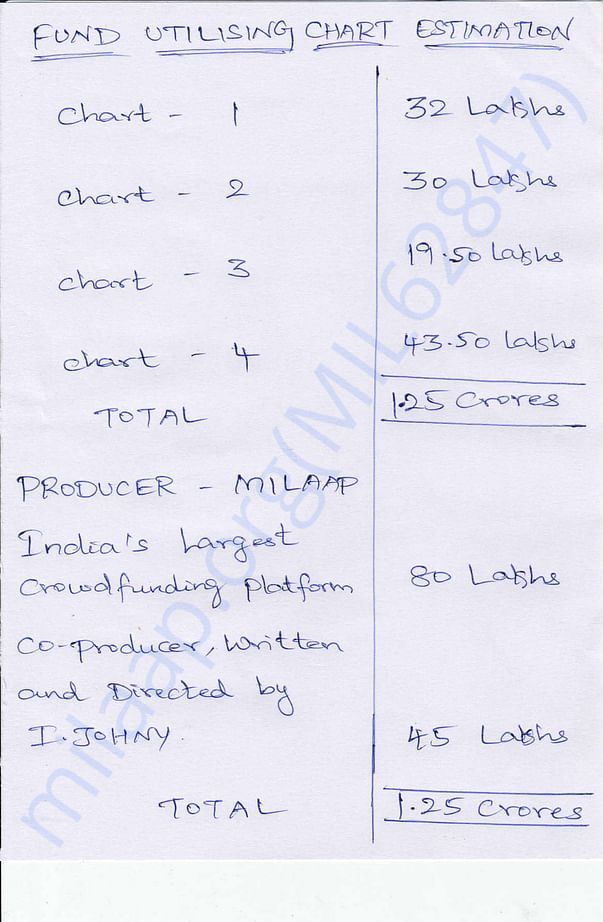 FUND UTILISING CHART ESTIMATION
Chart - 1 32 Lakhs
Chart - 2 30 Lakhs
Chart - 3 19.50 Lakhs
Chart - 4 43.50 Lakhs
TOTAL 1.25 Crores
PRODUCER - MILAAP
India's Largest
Crowdfunding platform 80 Lakhs
Co-producer, Written
and Directed by
I. JOHNY. 45 Lakhs
TOTAL 1.25 Crores
milaap.org(MIL62847)